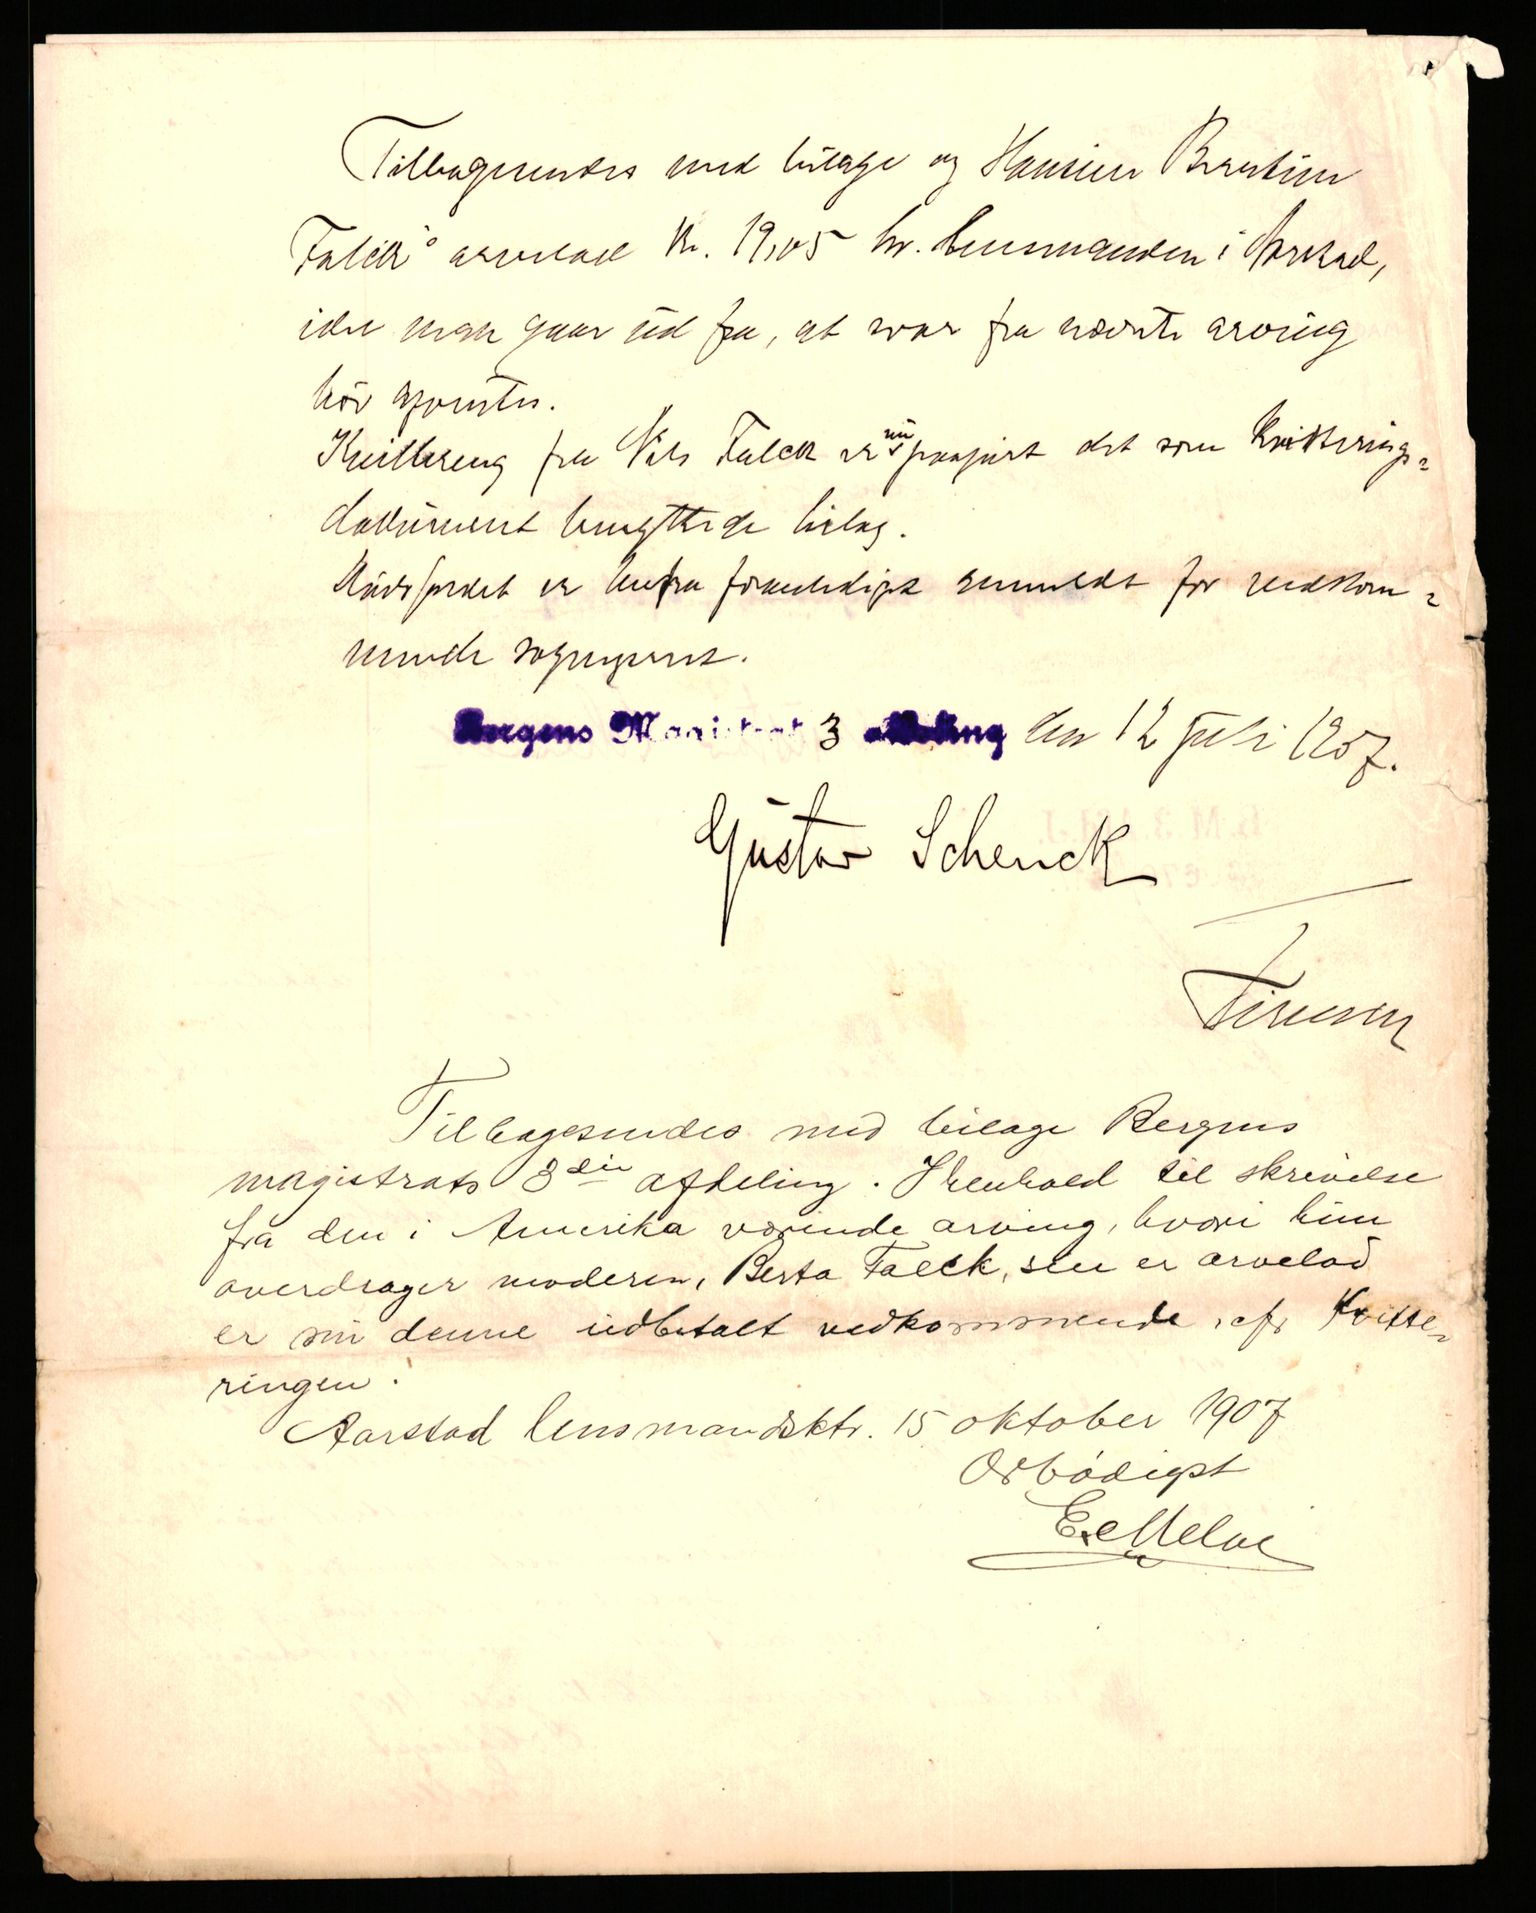 Tilbagesendes med bilage og Hansine Bertine
Falck's arvelod Kr. 19,05 hr. lensmanden i Aarstad,
idet man gaar ud fra, at svar fra nævnte arving
bör afventes.
Kvittering fra Nils Falck er nu paaført det som kvitterings-
dokument benyttede bilag.
Dödsfaldet er herfra foranlediget anmeldt for vedkom-
mende sogneprest.
Bergens Magistrat 3 afdeling den 12 juli 1907.
Gustav Schenck
Tilbagesendes med bilage Bergens
magistrats 3die afdeling. I henhold til skrivelse
fra den i Amerika værende arving, hvori hun
overdrager moderen, Berta Falck, sin er arvelod
er nu denne udbetalt vedkommende, cfr kvitte-
ringen.
Aarstad lensmandsktr. 15 oktober 1907
Ærbödigst